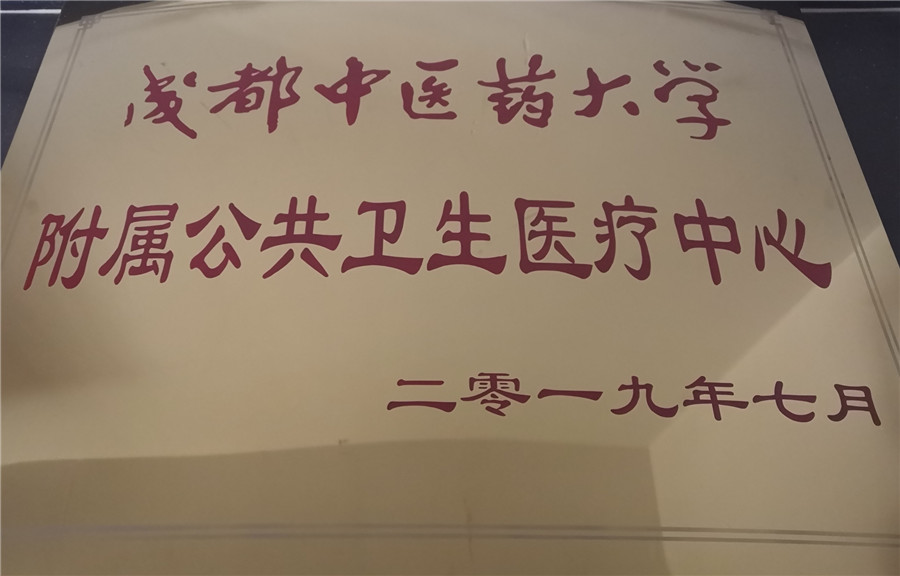 成都中医药大学
附属公共卫生医疗中心
二零一九年七月